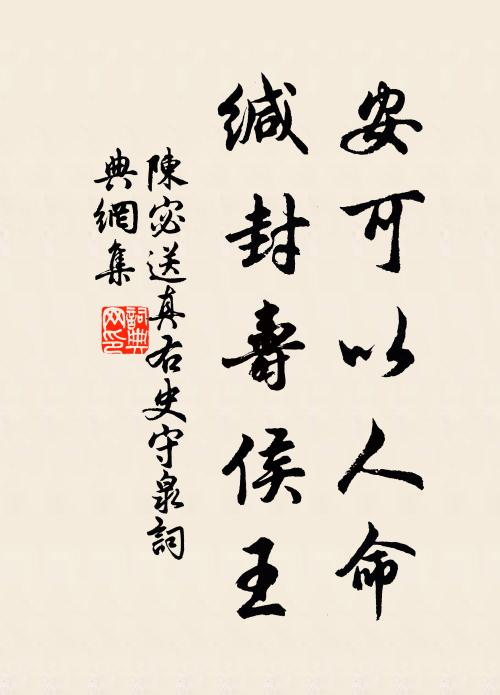 安可以人命
緘封壽侯王
陳宓送真右史守泉詞
典網集
詞典网印